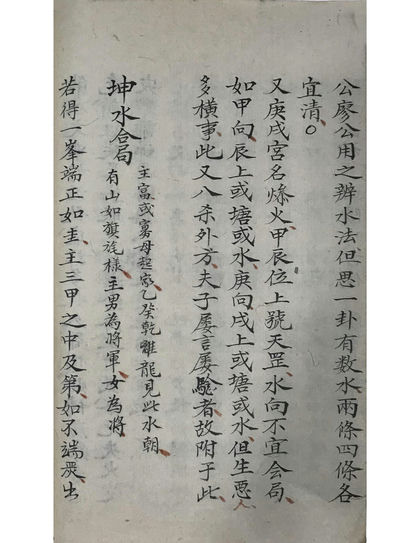 公廖公用之辨水法但思一卦有数水兩條四條各
宜清○
又庚戌宮名燥火甲辰位上號天罡水向不宜会局
如甲向辰上或塘或水庚向戌上或塘或水但生惡人
多橫事此又八杀外方夫子屡言屡驗者故附于此
坤水合局
主富或寡母起家乙癸乾離龍見此水朝
有山如旗旄樣主男為將軍女為將
若得一峯端正如圭主三甲之中及第如不端㷋出